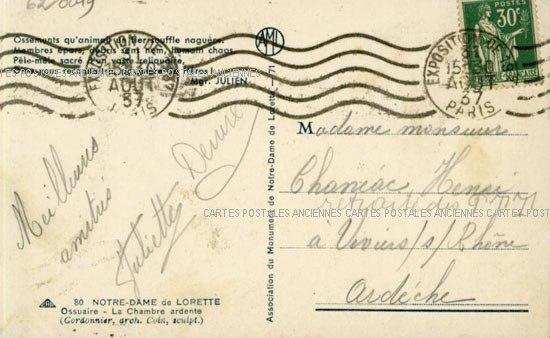 62/0049
Ossements qu'animait un fier souffle naguère,
Membres épars, débris sans nom, humain chaos,
Pêle-mêle sacré d'un vaste reliquaire,
Mgr. JULIEN
AM
EXPOSITION
AOUT
37
30c
EXPOSITION
15
AOUT
37
PARIS
Meilleures
amitiés
Juliette
Association du Monument de Notre-Dame de Lorette,
71
Madame monsieur
Chanéac Henri
retraité des
à Viviers/s/Rhône
Ardèche
CARTES POSTALES ANCIENNES CARTES POSTALES ANCIENNES CARTES POSTALES ANCIENNES
80 NOTRE-DAME de LORETTE
Ossuaire - La Chambre ardente
(Cordonnier, arch. Coin, sculpt.)